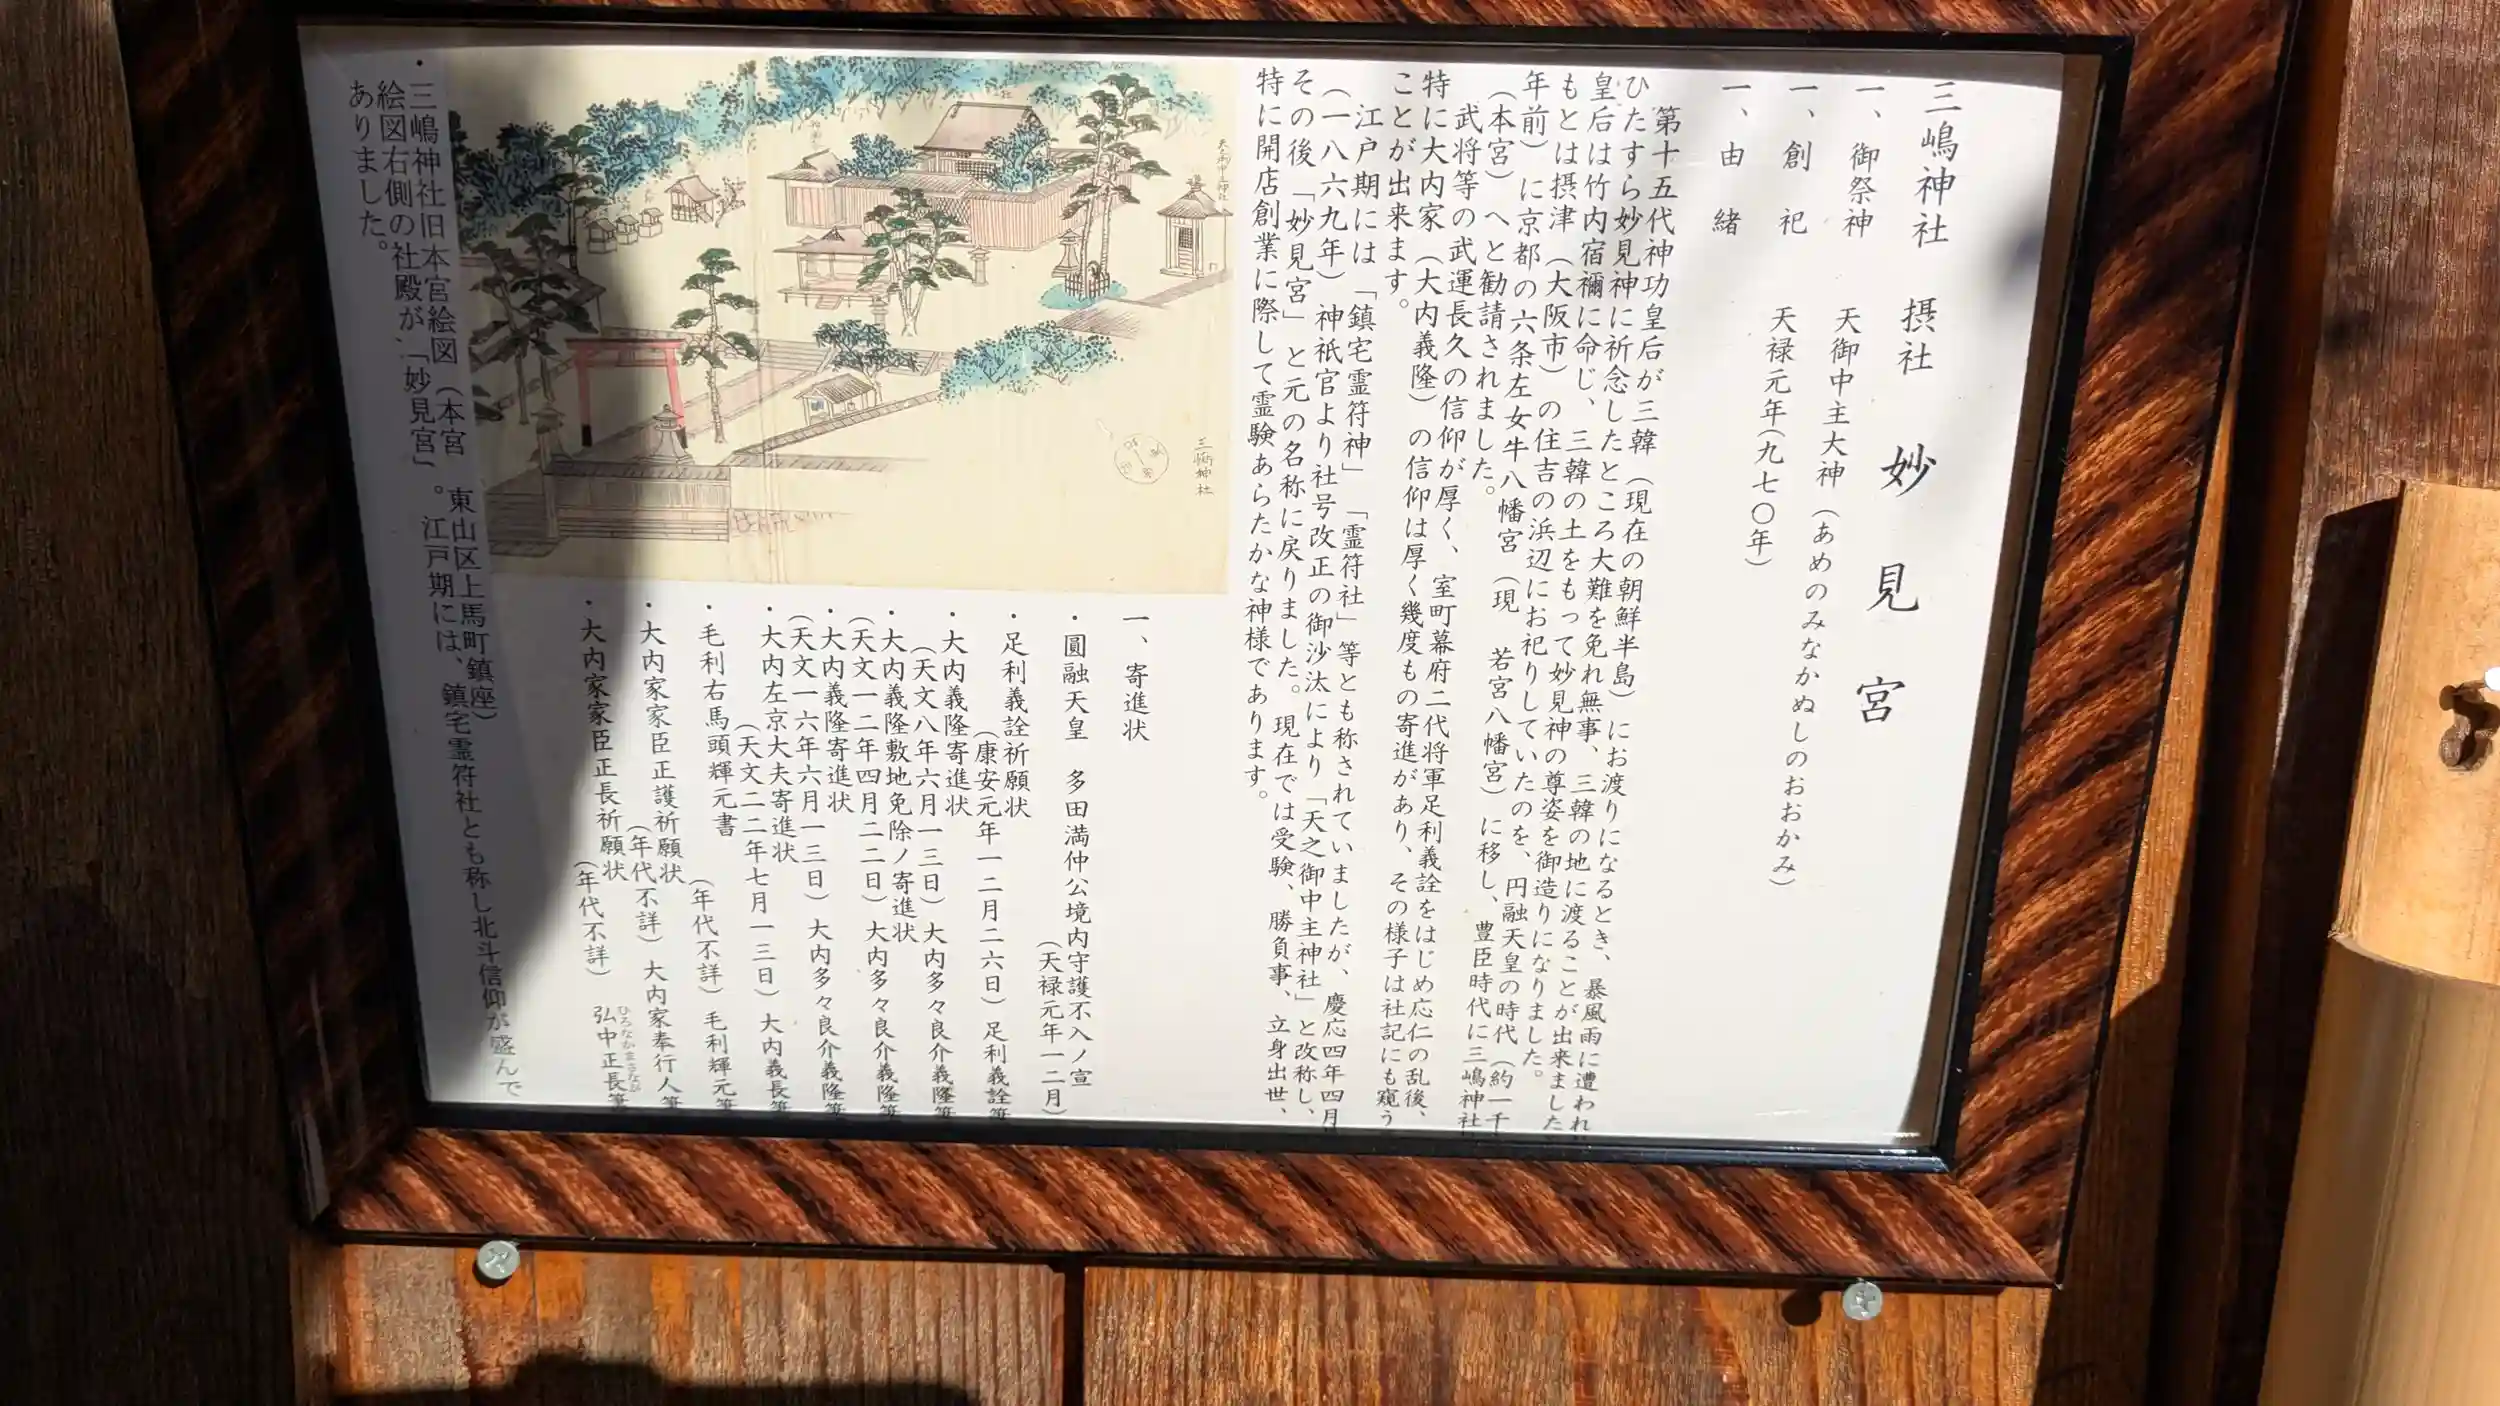 三嶋神社 摂社 妙見宮
一、御祭神 天御中主大神(あめのみなかぬしのおおかみ)
一、創祀 天禄元年(九七〇年)
一、由緒
第十五代神功皇后が三韓(現在の朝鮮半島)にお渡りになるとき、暴風雨に遭われ
ひたすら妙見神に祈念したところ大難を免れ無事、三韓の地に渡ることが出来ました
皇后は竹内宿禰に命じ、三韓の土をもって妙見神の尊姿を御造りになりました。
もとは摂津(大阪市)の住吉の浜辺にお祀りしていたのを、円融天皇の時代(約一千
年前)に京都の六条左女牛八幡宮(現 若宮八幡宮)に移し、豊臣時代に三嶋神社
(本宮)へと勧請されました。
武将等の武運長久の信仰が厚く、室町幕府二代将軍足利義詮をはじめ応仁の乱後、
特に大内家(大内義隆)の信仰は厚く幾度もの寄進があり、その様子は社記にも窺う
ことが出来ます。
江戸期には「鎮宅霊符神」「霊符社」等とも称されていましたが、慶応四年四月
(一八六九年)神祇官より社号改正の御沙汰により「天之御中主神社」と改称し、
その後「妙見宮」と元の名称に戻りました。現在では受験、勝負事、立身出世、
特に開店創業に際して霊験あらたかな神様であります。
一、寄進状
・圓融天皇 多田満仲公境内守護不入ノ宣
(天禄元年一二月)
・足利義詮祈願状
(康安元年一二月二六日)足利義詮筆
・大内義隆寄進状
(天文八年六月一三日)大内多々良介義隆筆
・大内義隆敷地免除ノ寄進状
(天文一二年四月二二日)大内多々良介義隆筆
・大内義隆寄進状
(天文一六年六月一三日)大内多々良介義隆筆
・大内左京大夫寄進状
(天文二二年七月一三日)大内義長筆
・毛利右馬頭輝元書
(年代不詳)毛利輝元筆
・大内家家臣正護祈願状
(年代不詳)大内家奉行人筆
・大内家家臣正長祈願状
(年代不詳) 弘中正長筆
ひろなかまさなが
天之御中主神社
三嶋神社
・三嶋神社旧本宮絵図(本宮 東山区上馬町鎮座)
絵図右側の社殿が、「妙見宮」。江戸期には、鎮宅霊符社とも称し北斗信仰が盛んで
ありました。